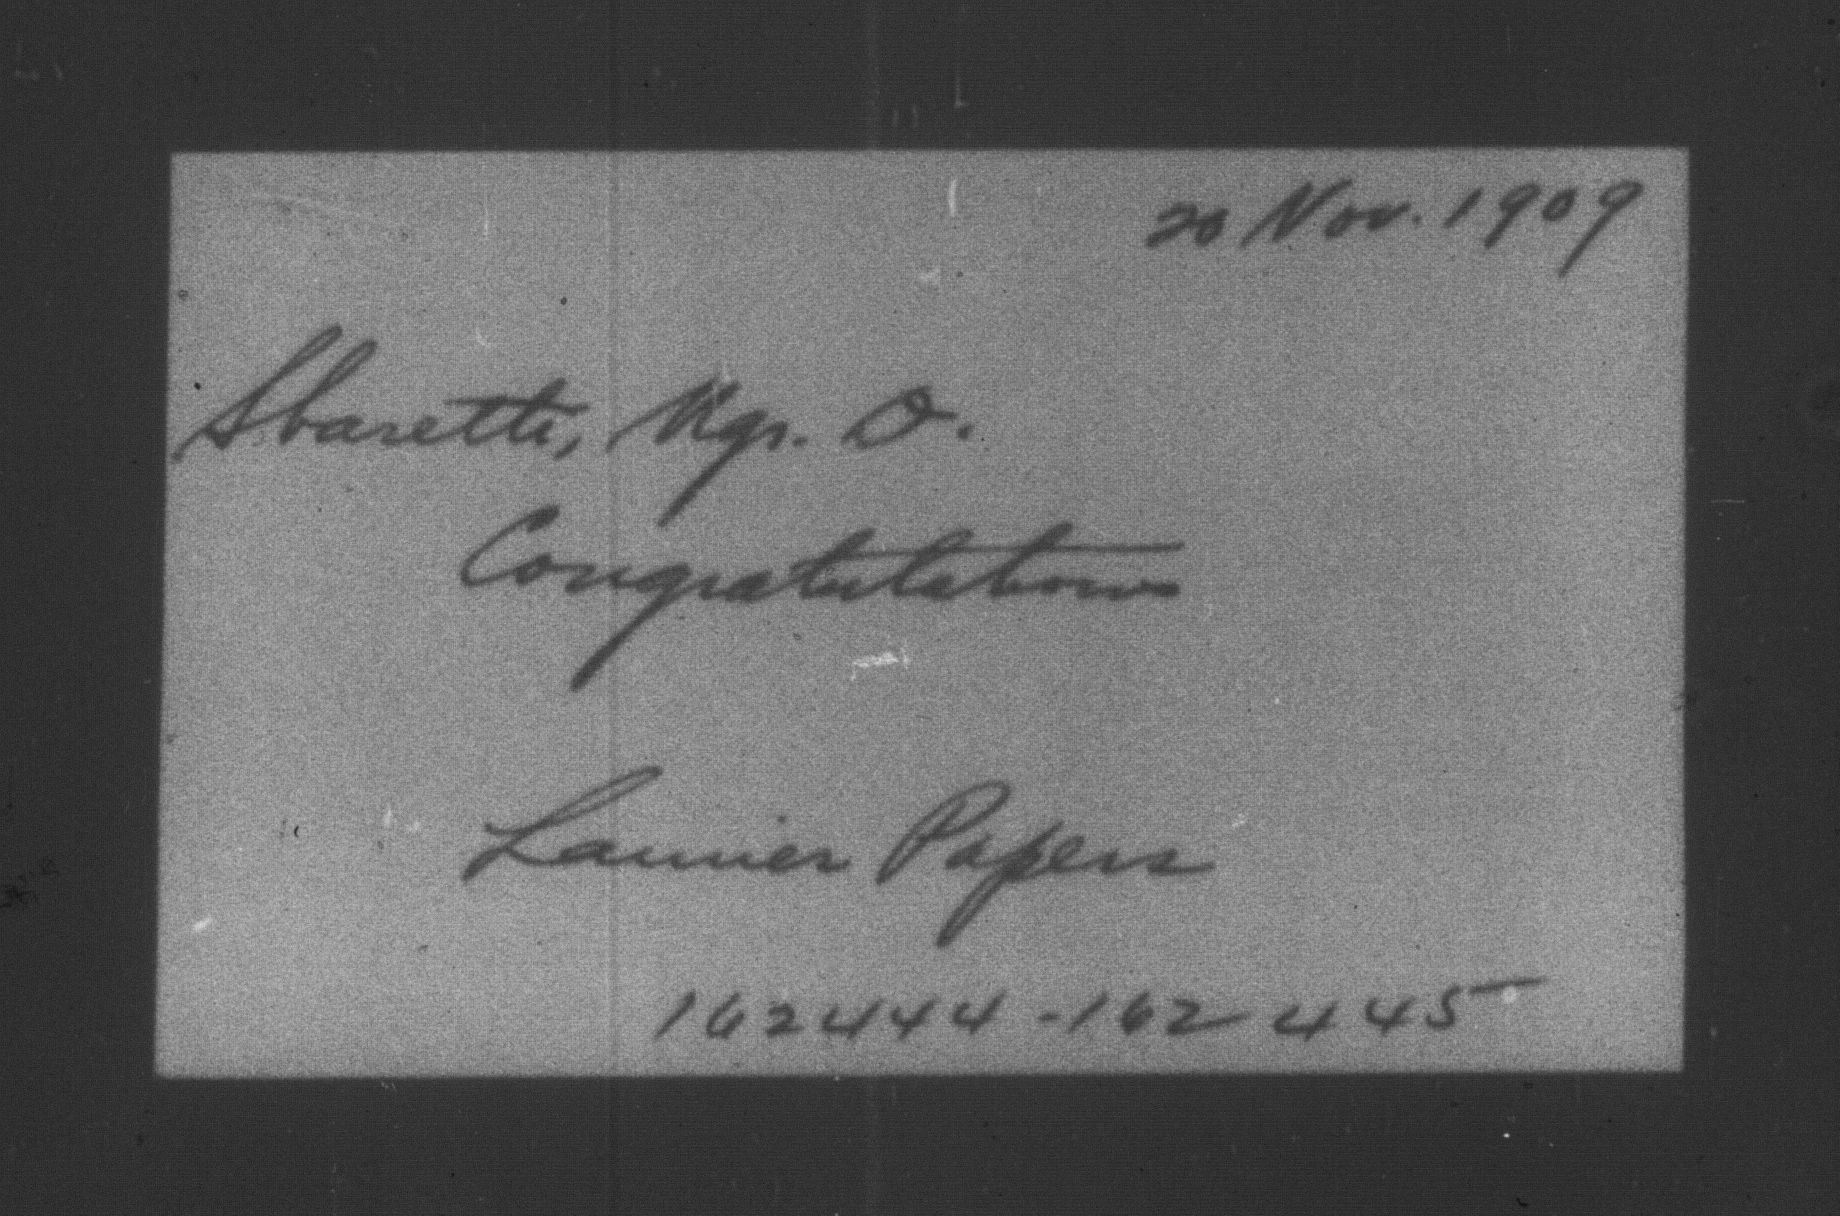 20 Nov. 1909
Sbaretti, Mgr. D.
Congratulations
Laurier Papers
162444-162445